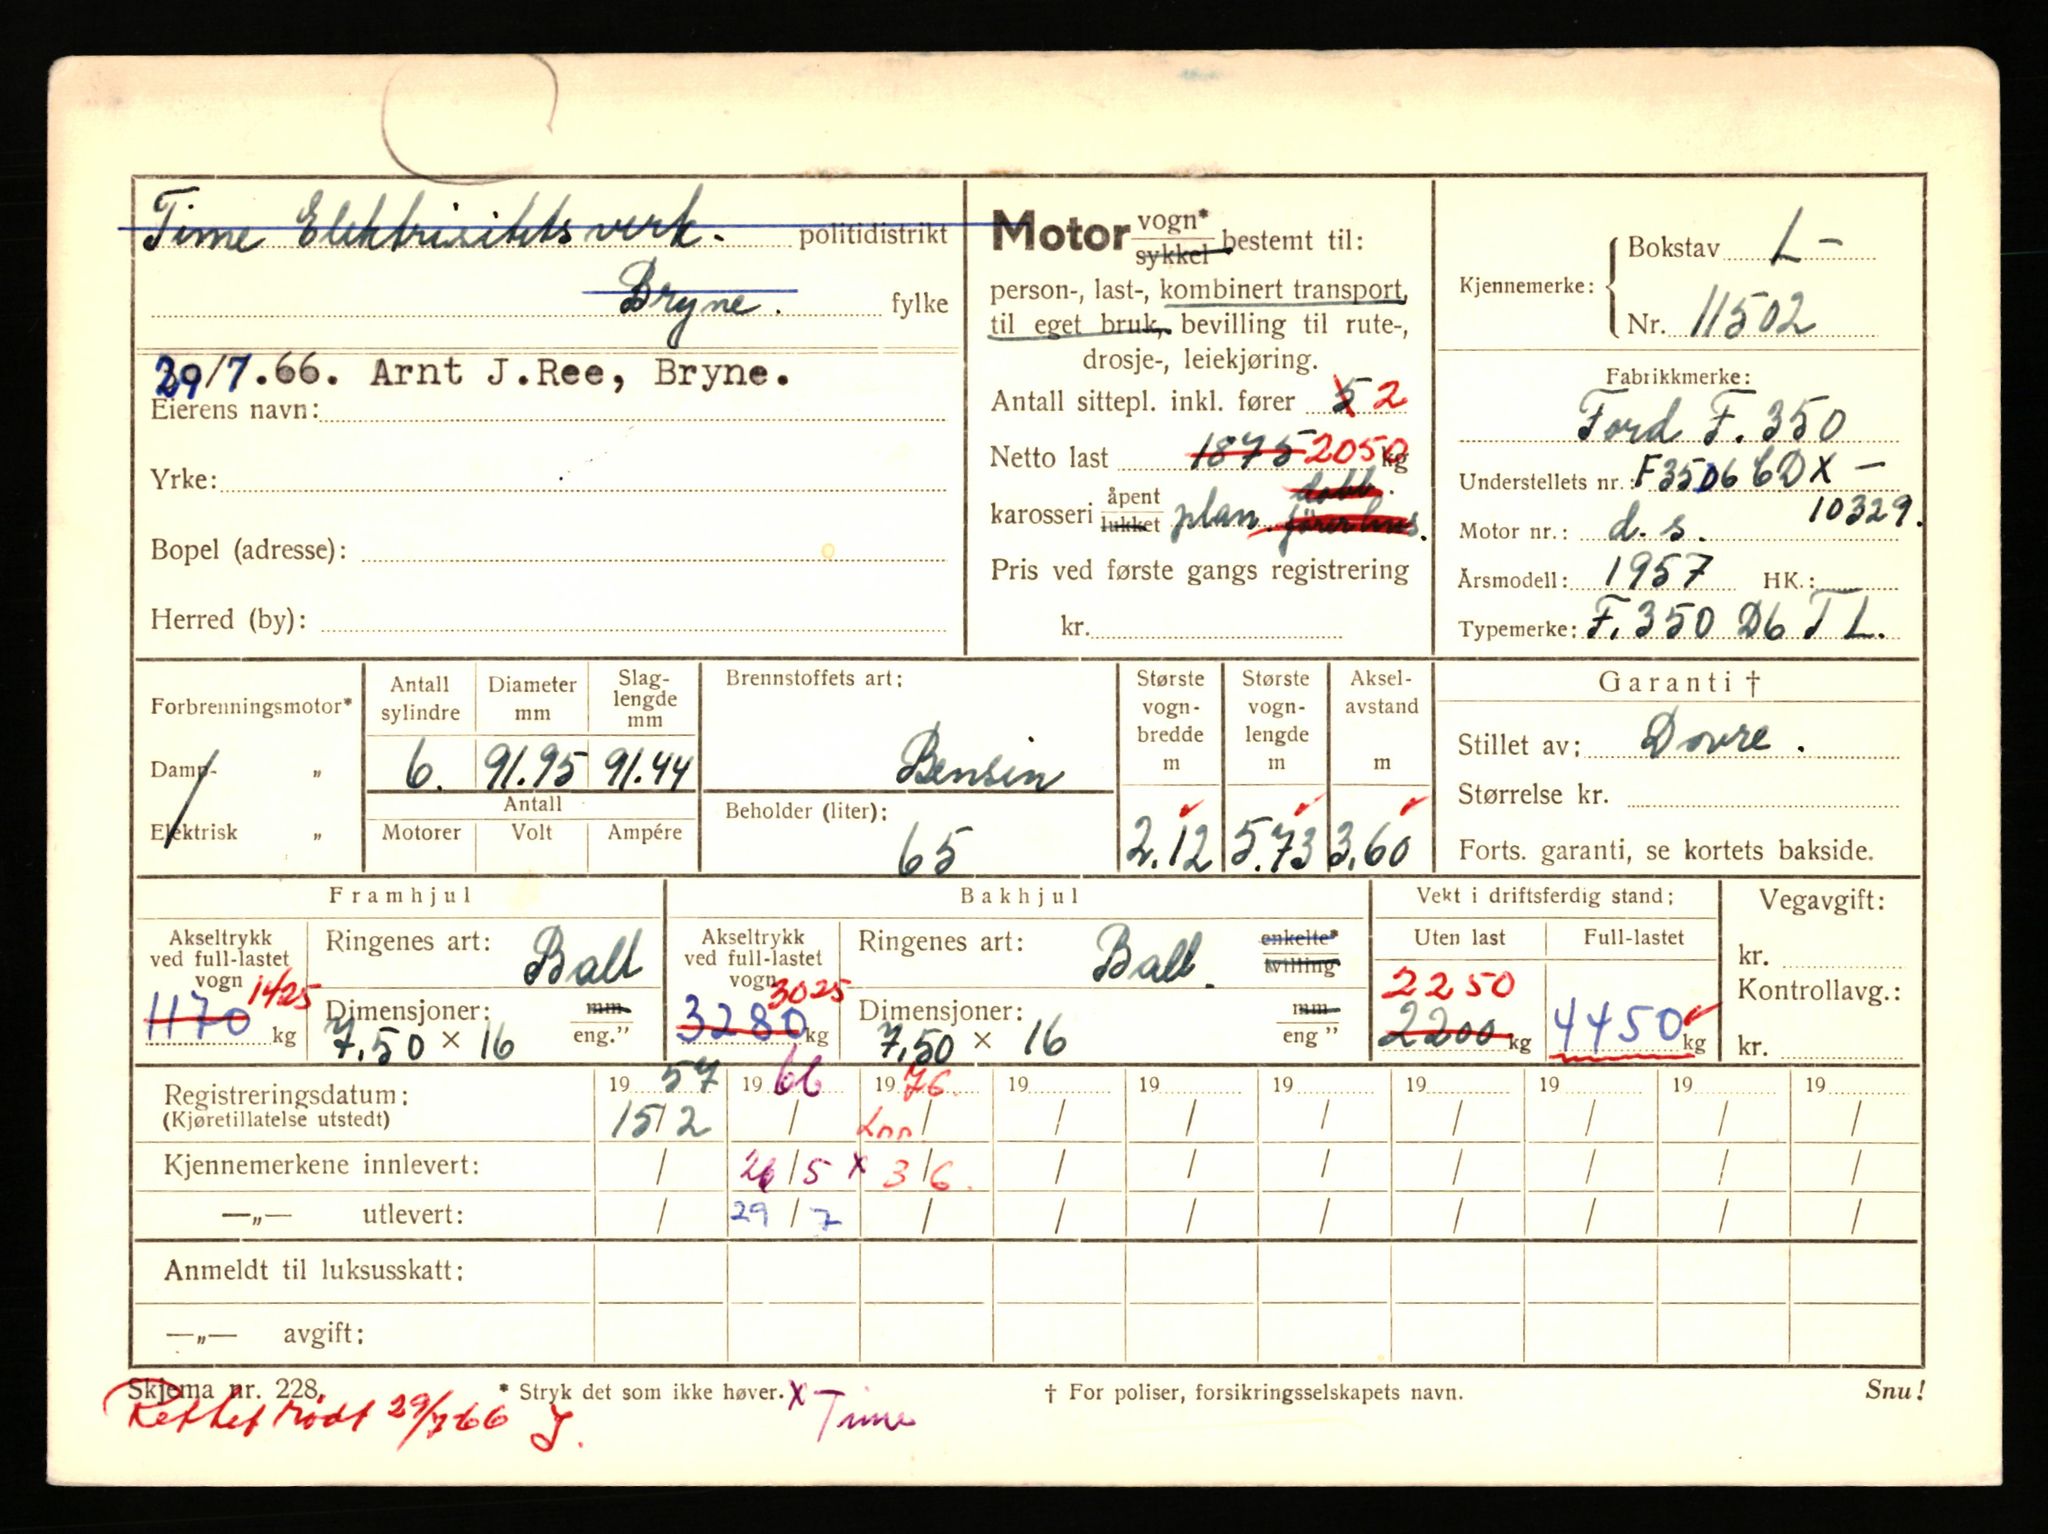 Time Elektrisitetsverk. politidistrikt
Bryne. fylke
29/7.66. Arnt J.Ree, Bryne.
Eierens navn:
Yrke:
Bopel (adresse):
Herred (by):
Motor vogn* sykkel bestemt til:
person-, last-, kombinert transport,
til eget bruk, bevilling til rute-,
drosje-, leiekjøring.
Antall sittepl. inkl. fører 5 2
Netto last 1875 2050 kg
karosseri åpent lukket plan. dobb. førerhus.
Pris ved første gangs registrering
kr.
Kjennemerke: Bokstav L-
Nr. 11502
Fabrikkmerke:
Ford F. 350
Understellets nr.: F35D6 CDX -
10329.
Motor nr.: d. s.
Årsmodell: 1957 HK.:
Typemerke: F. 350 D6 T L.
Forbrenningsmotor*
Damp- „
Elektrisk „
Antall sylindre
Diameter mm
Slag-lengde mm
6. 91.95 91.44
Antall
Motorer Volt Ampére
Brennstoffets art:
Bensin
Beholder (liter):
65
Største vogn-bredde m
2.12
Største vogn-lengde m
5.73
Aksel-avstand m
3.60
Garanti †
Stillet av: Dovre.
Størrelse kr.
Forts. garanti, se kortets bakside.
Framhjul
Akseltrykk ved full-lastet vogn
1425
1170 kg
Ringenes art: Ball
Dimensjoner: mm
7.50 × 16 eng.”
Bakhjul
Akseltrykk ved full-lastet vogn
3025
3280 kg
Ringenes art: Ball. enkelte* tvilling
Dimensjoner: mm
7.50 × 16 eng”
Vekt i driftsferdig stand:
Uten last Full-lastet
2250
2200 kg 4450 kg
Vegavgift:
kr.
Kontrollavg.:
kr.
Registreringsdatum: 19 57 19 66 19 76. 19 19 19 19 19 19 19
(Kjøretillatelse utstedt) 15/2 / / / / / / / / /
Kjennemerkene innlevert: / 26/5 x 3/6. / / / / / / /
—„— utlevert: / 29/7 / / / / / / / /
Anmeldt til luksusskatt:
—„— avgift:
Skjema nr. 228.
* Stryk det som ikke høver. x Time
† For poliser, forsikringsselskapets navn.
Snu!
Rettet rødt 29/7 66 J.